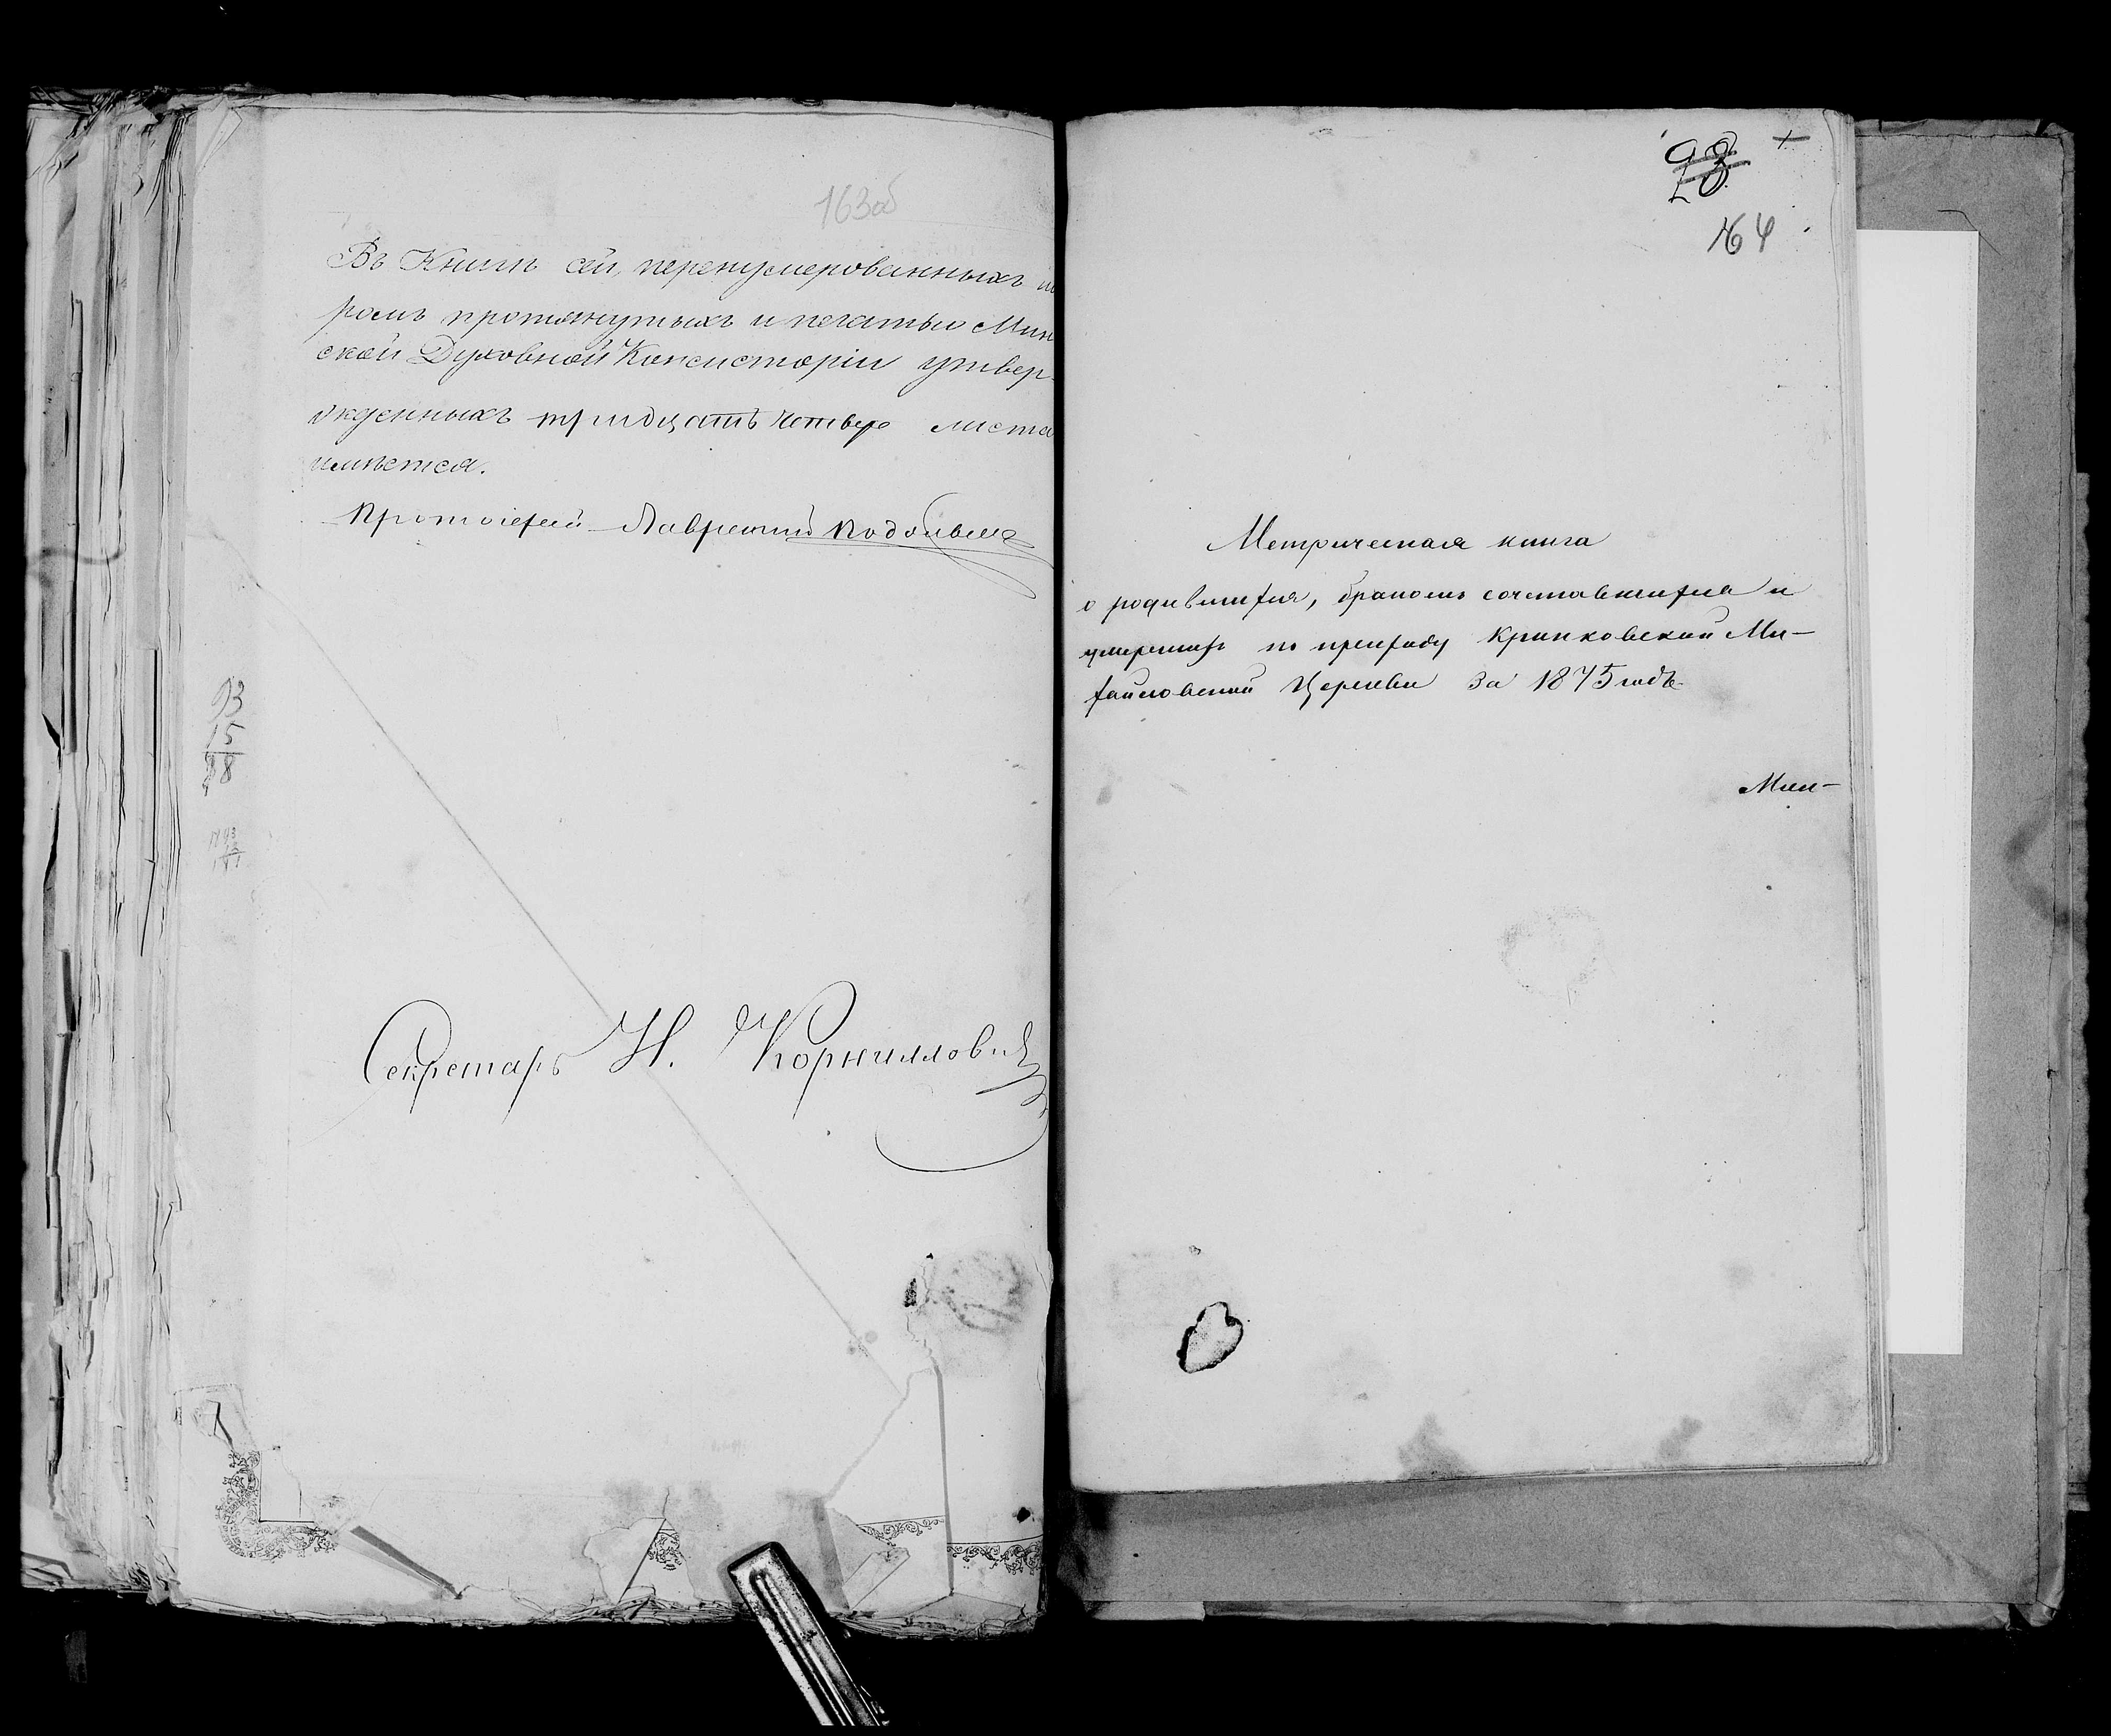 163об
Въ Книгѣ сей, перенумерованныхъ
ромъ протянутыхъ и печатью Мин
ской Духовной Консисторіи утвер
жденныхъ тридцать четыре листа
имѣется.
Протоіерей Лаврентій
93
15
Секретарь Н. Корнилович
164
Метрическая книга
о родившихся, бракомъ сочетавшихся и
умершихъ по приходу Кринковской Ми-
хайловской Церкви за 1875 годъ
Мин-